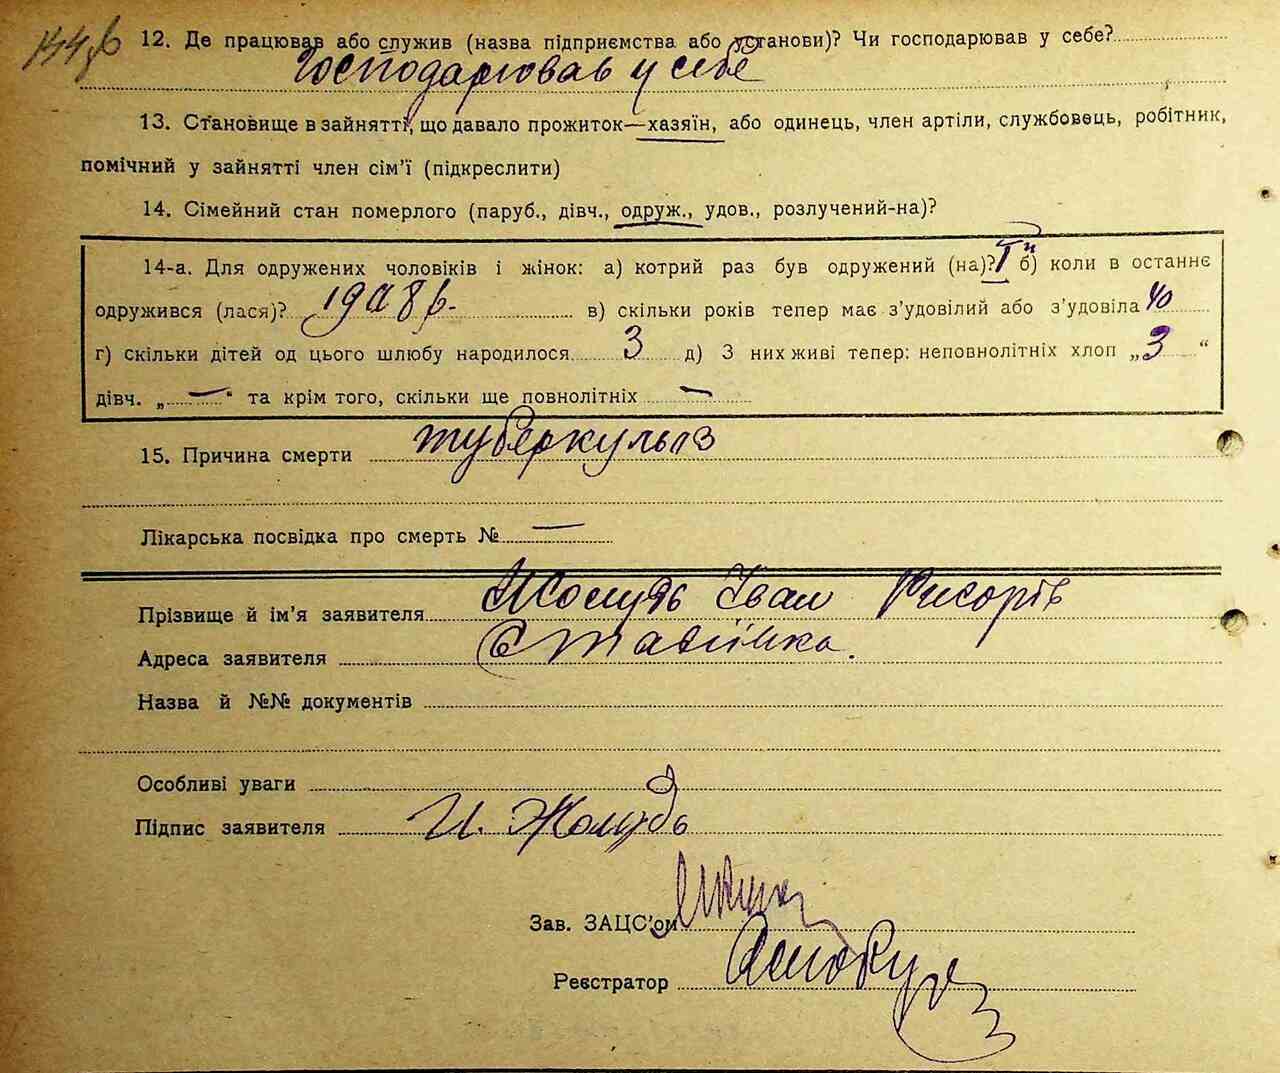 144 зв
12. Де працював або служив (назва підприємства або установи)? Чи господарював у себе?
Господарював у себе
13. Становище в зайнятті, що давало прожиток—хазяїн, або одинець, член артіли, службовець, робітник,
помічний у зайнятті член сім'ї (підкреслити)
14. Сімейний стан померлого (паруб., дівч., одруж., удов., розлучений-на)?
14-а. Для одружених чоловіків і жінок: а) котрий раз був одружений (на)? I й б) коли в останнє
одружився (лася)? 1908 р. в) скільки років тепер має з'удовілий або з'удовіла 40
г) скільки дітей од цього шлюбу народилося 3 д) З них живі тепер: неповнолітніх хлоп „3“
дівч. „—“ та крім того, скільки ще повнолітніх —
15. Причина смерти туберкульоз
Лікарська посвідка про смерть № —
Прізвище й ім'я заявителя Жолудь Іван
Адреса заявителя
Назва й №№ документів
Особливі уваги
Підпис заявителя И. Жолудь
Зав. ЗАЦС'ом
Реєстратор